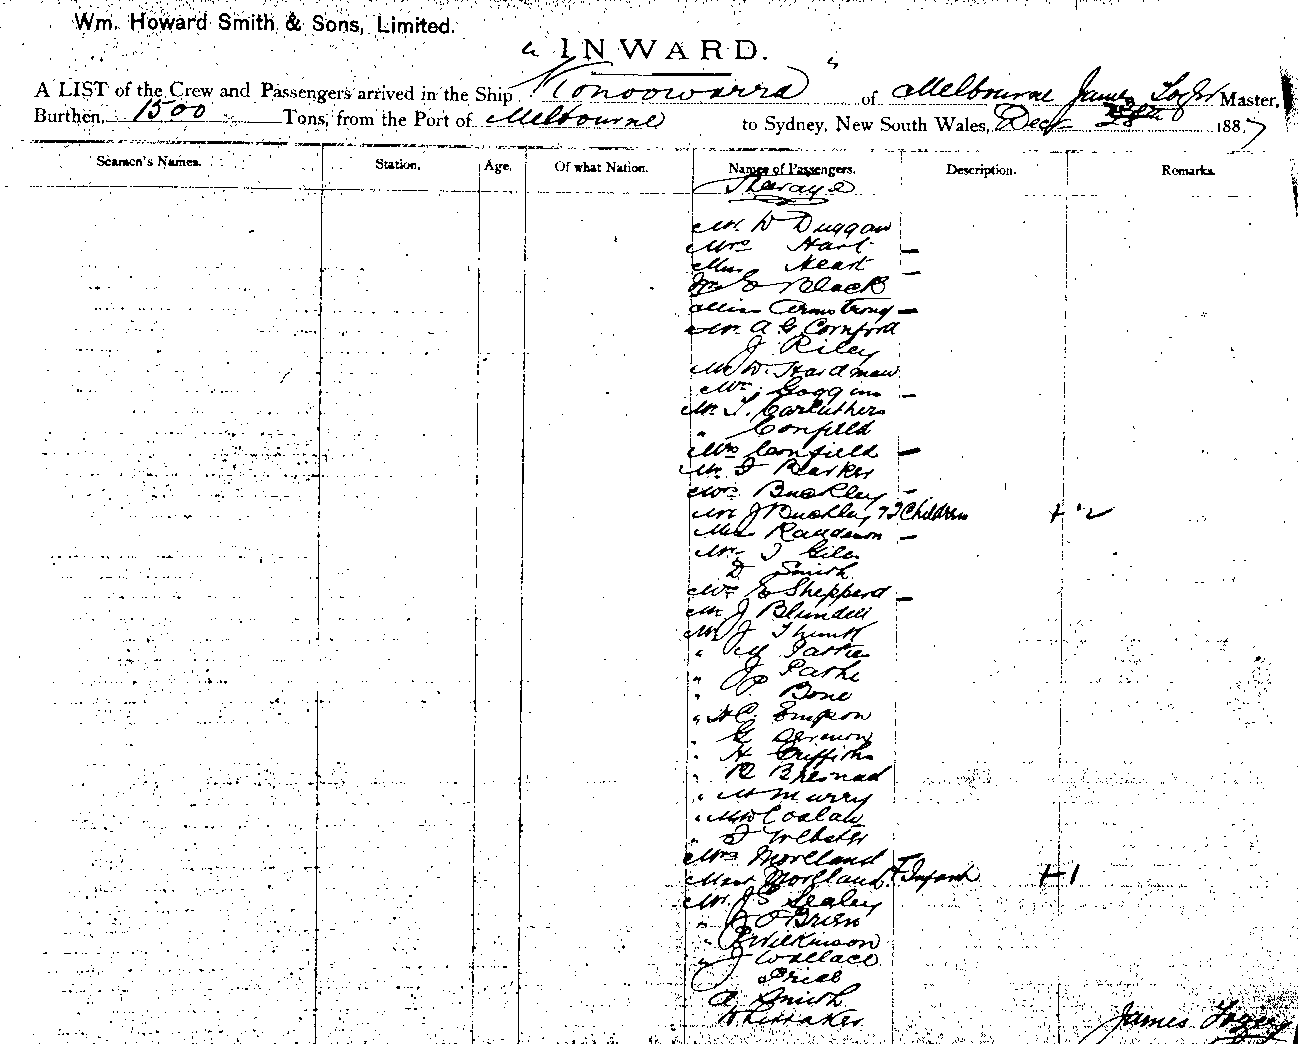 Wm. Howard Smith & Sons, Limited.
INWARD.
A LIST of the Crew and Passengers arrived in the Ship Konoowarra of Melbourne James Master,
Burthen, 1500 Tons, from the Port of Melbourne to Sydney, New South Wales, Decr 28th 1887
Seamen's Names. Station. Age. Of what Nation. Names of Passengers. Description. Remarks.
Steerage
Mr W Duggan
Mrs Hart –
Miss Heart –
Black
Miss Armstrong –
Mr. A G Cornford
J Riley
Mr W. Hardman
Goggins –
Mr. T. Carruthers
" Confield
Mrs Confield –
Mr J Barker
Mrs Buckley –
Mr J Buckley + 2 Children + 2
–
Mr J Giles
D Smith
Mrs E Shepperd –
Mr J Blundell
Mr J
"
" J
" Bone
" Simpson
" G
" H Griffiths
" R
" W Murry
"
" J Webster
Mrs Moreland
Mast Moreland + Infant +1
Mr. J S Sealey
" J O'Brien
" Wilkinson
" J Wallace
A Smith
Whittaker
James